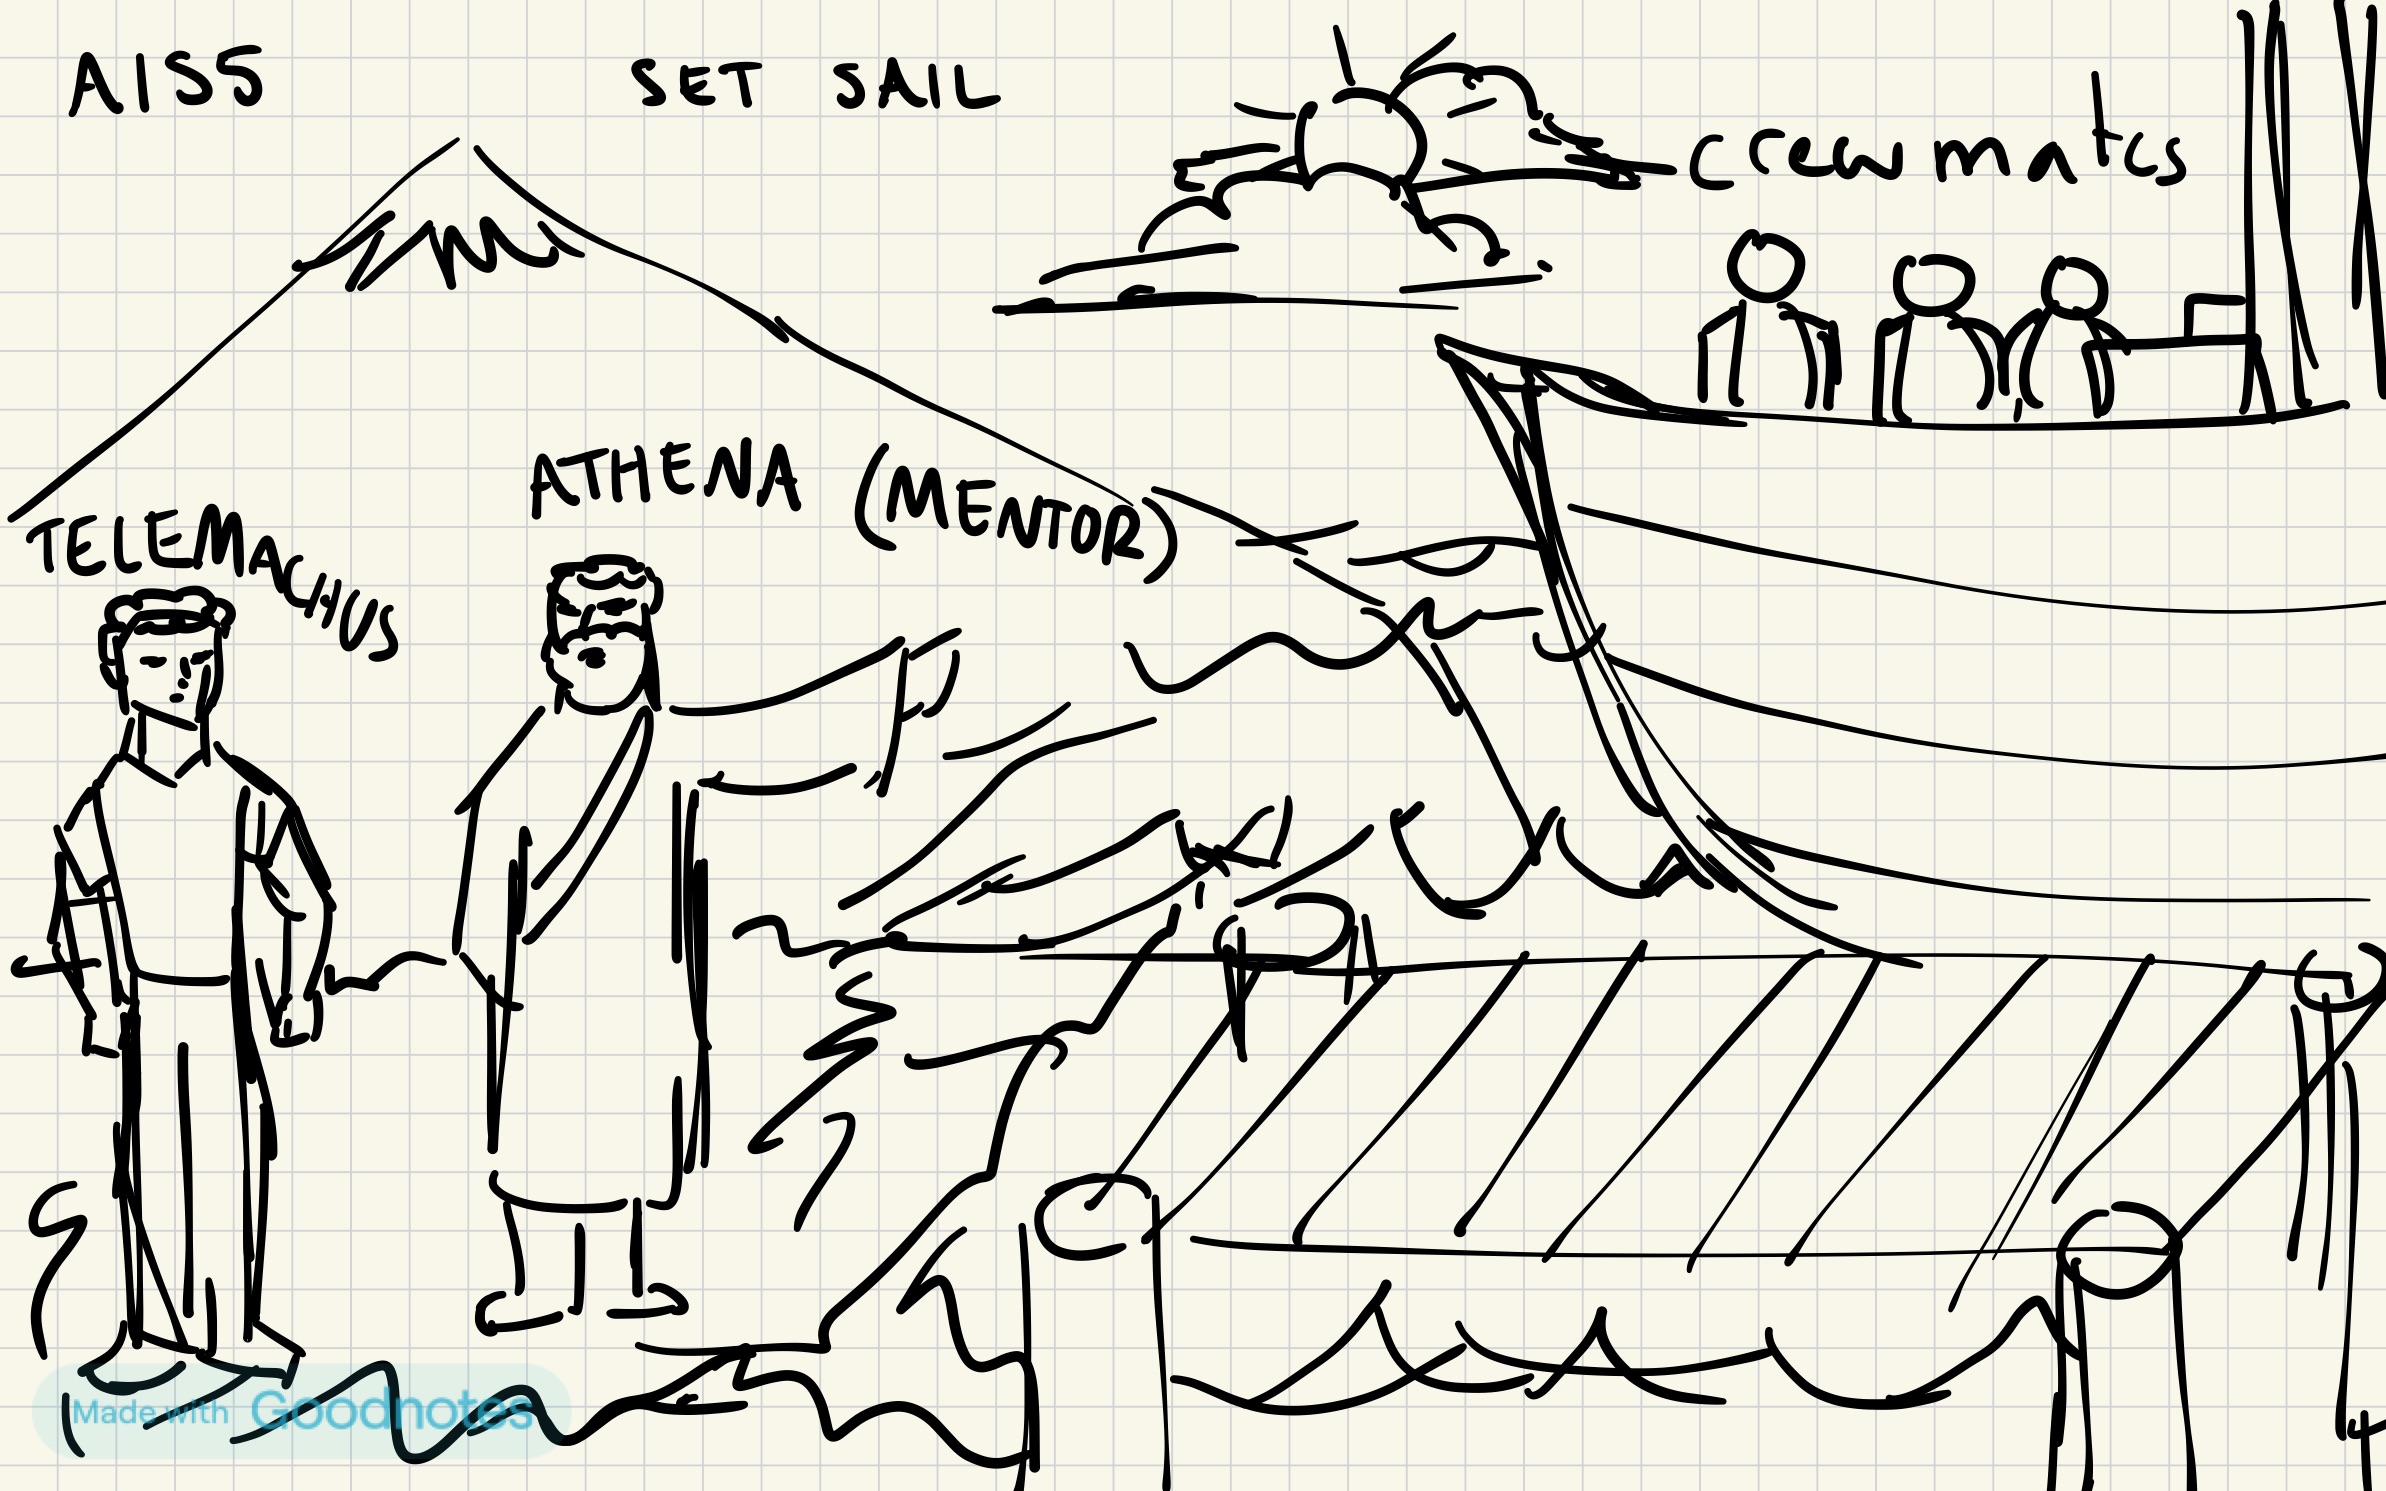 A1S5
SET SAIL
crewmates
ATHENA (MENTOR)
TELEMACHUS
Made with Goodnotes